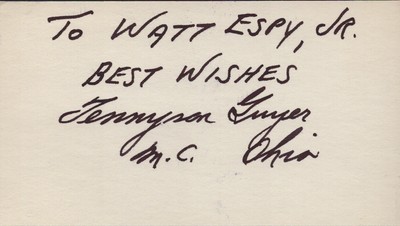 To WATT ESPY, JR.
BEST WISHES
Tennyson Guyer
M.C. Ohio